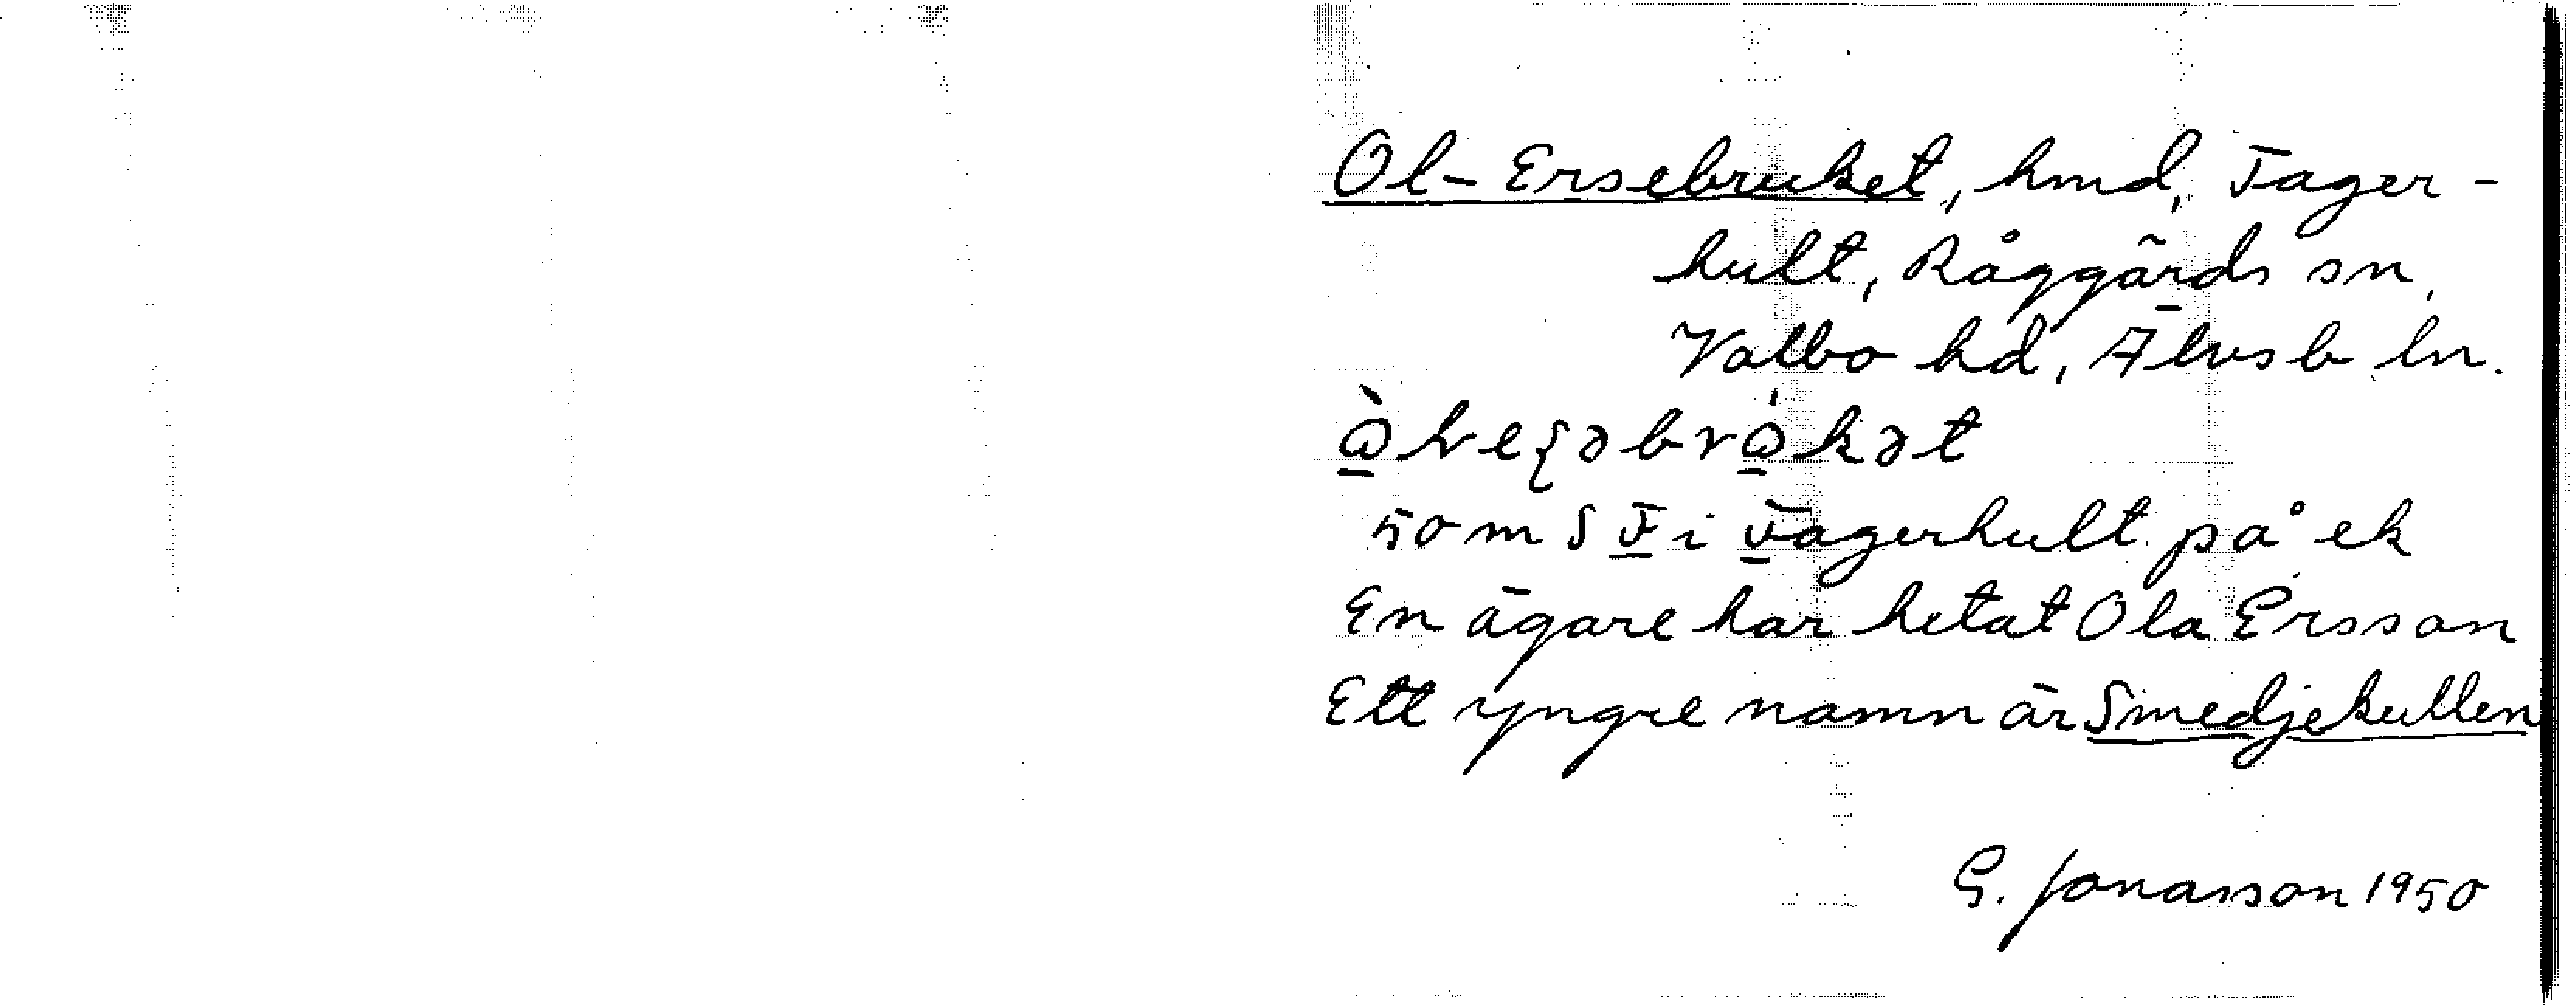 Ol-Ersebruket, hmd, Tager-
hult, Råggärds sn,
Valbo hd, Älvsb ln.
500 m S I i Tagerhult på ek
En ägare har hetat Ola Ersson
Ett yngre namn är Smedjekullen
G. Jonasson 1950